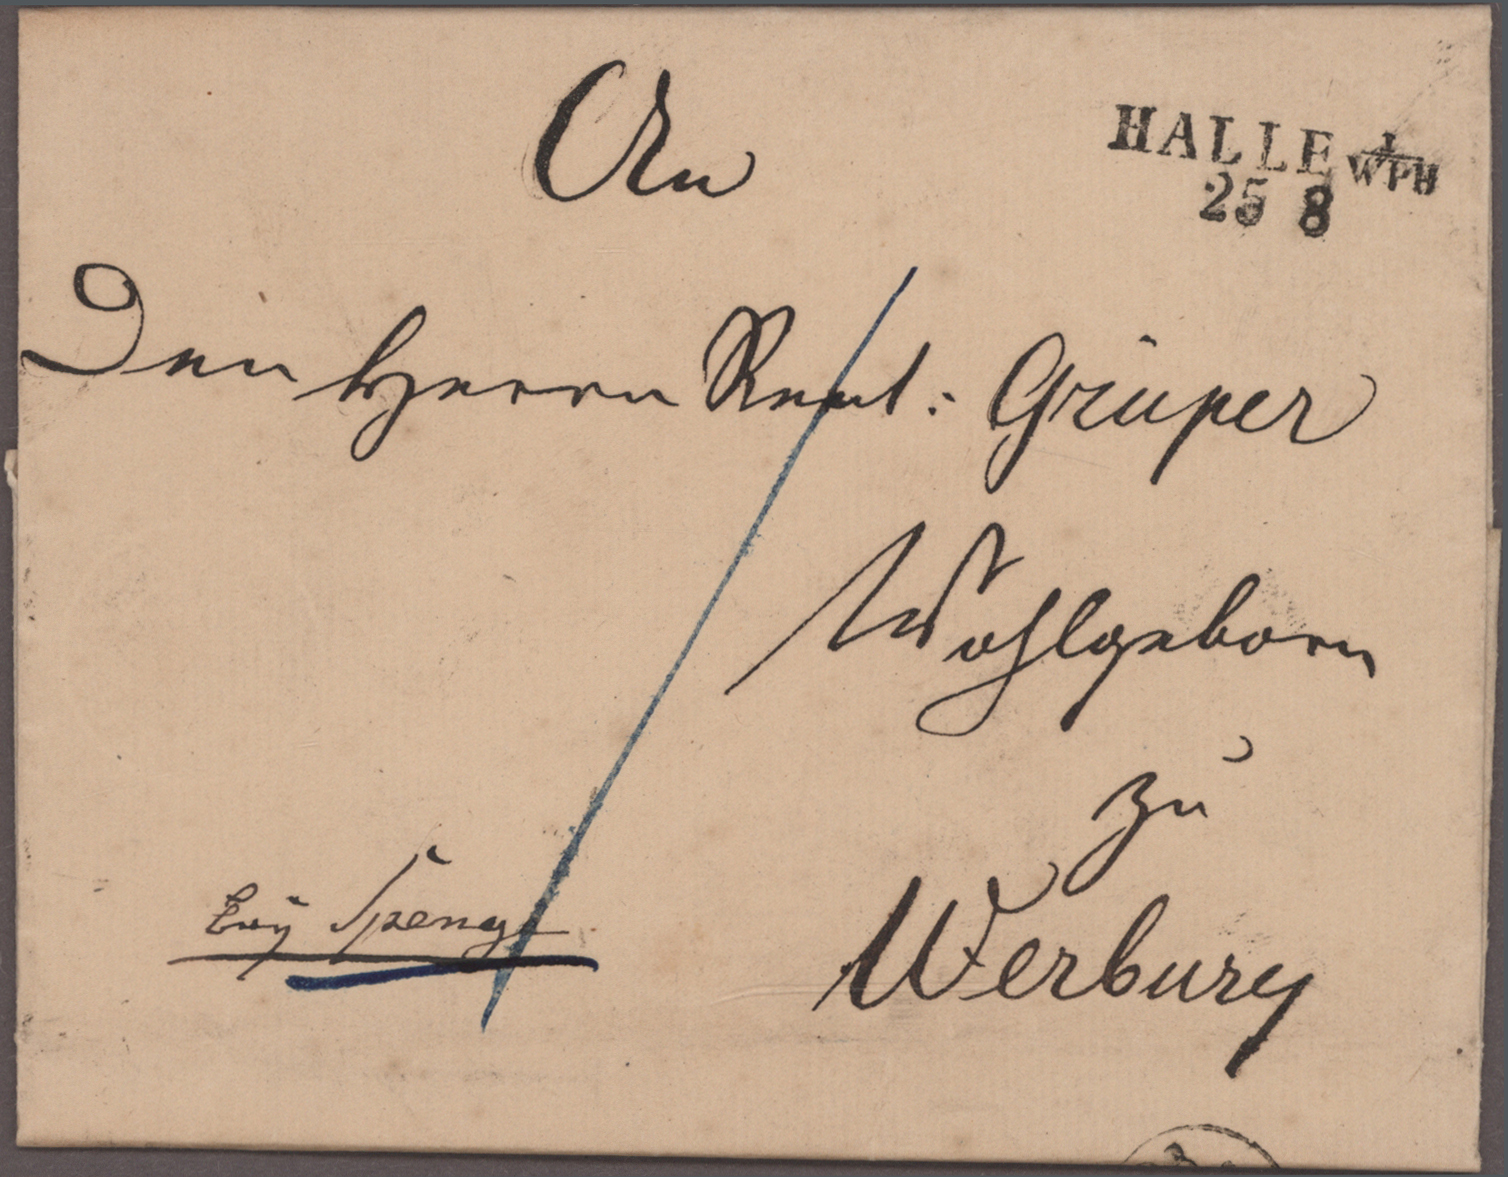 An
HALLE i/WPH
25 8
Den Herrn Rent: Grüper
Wohlgeborn
zu
bey Spenge
Werburg